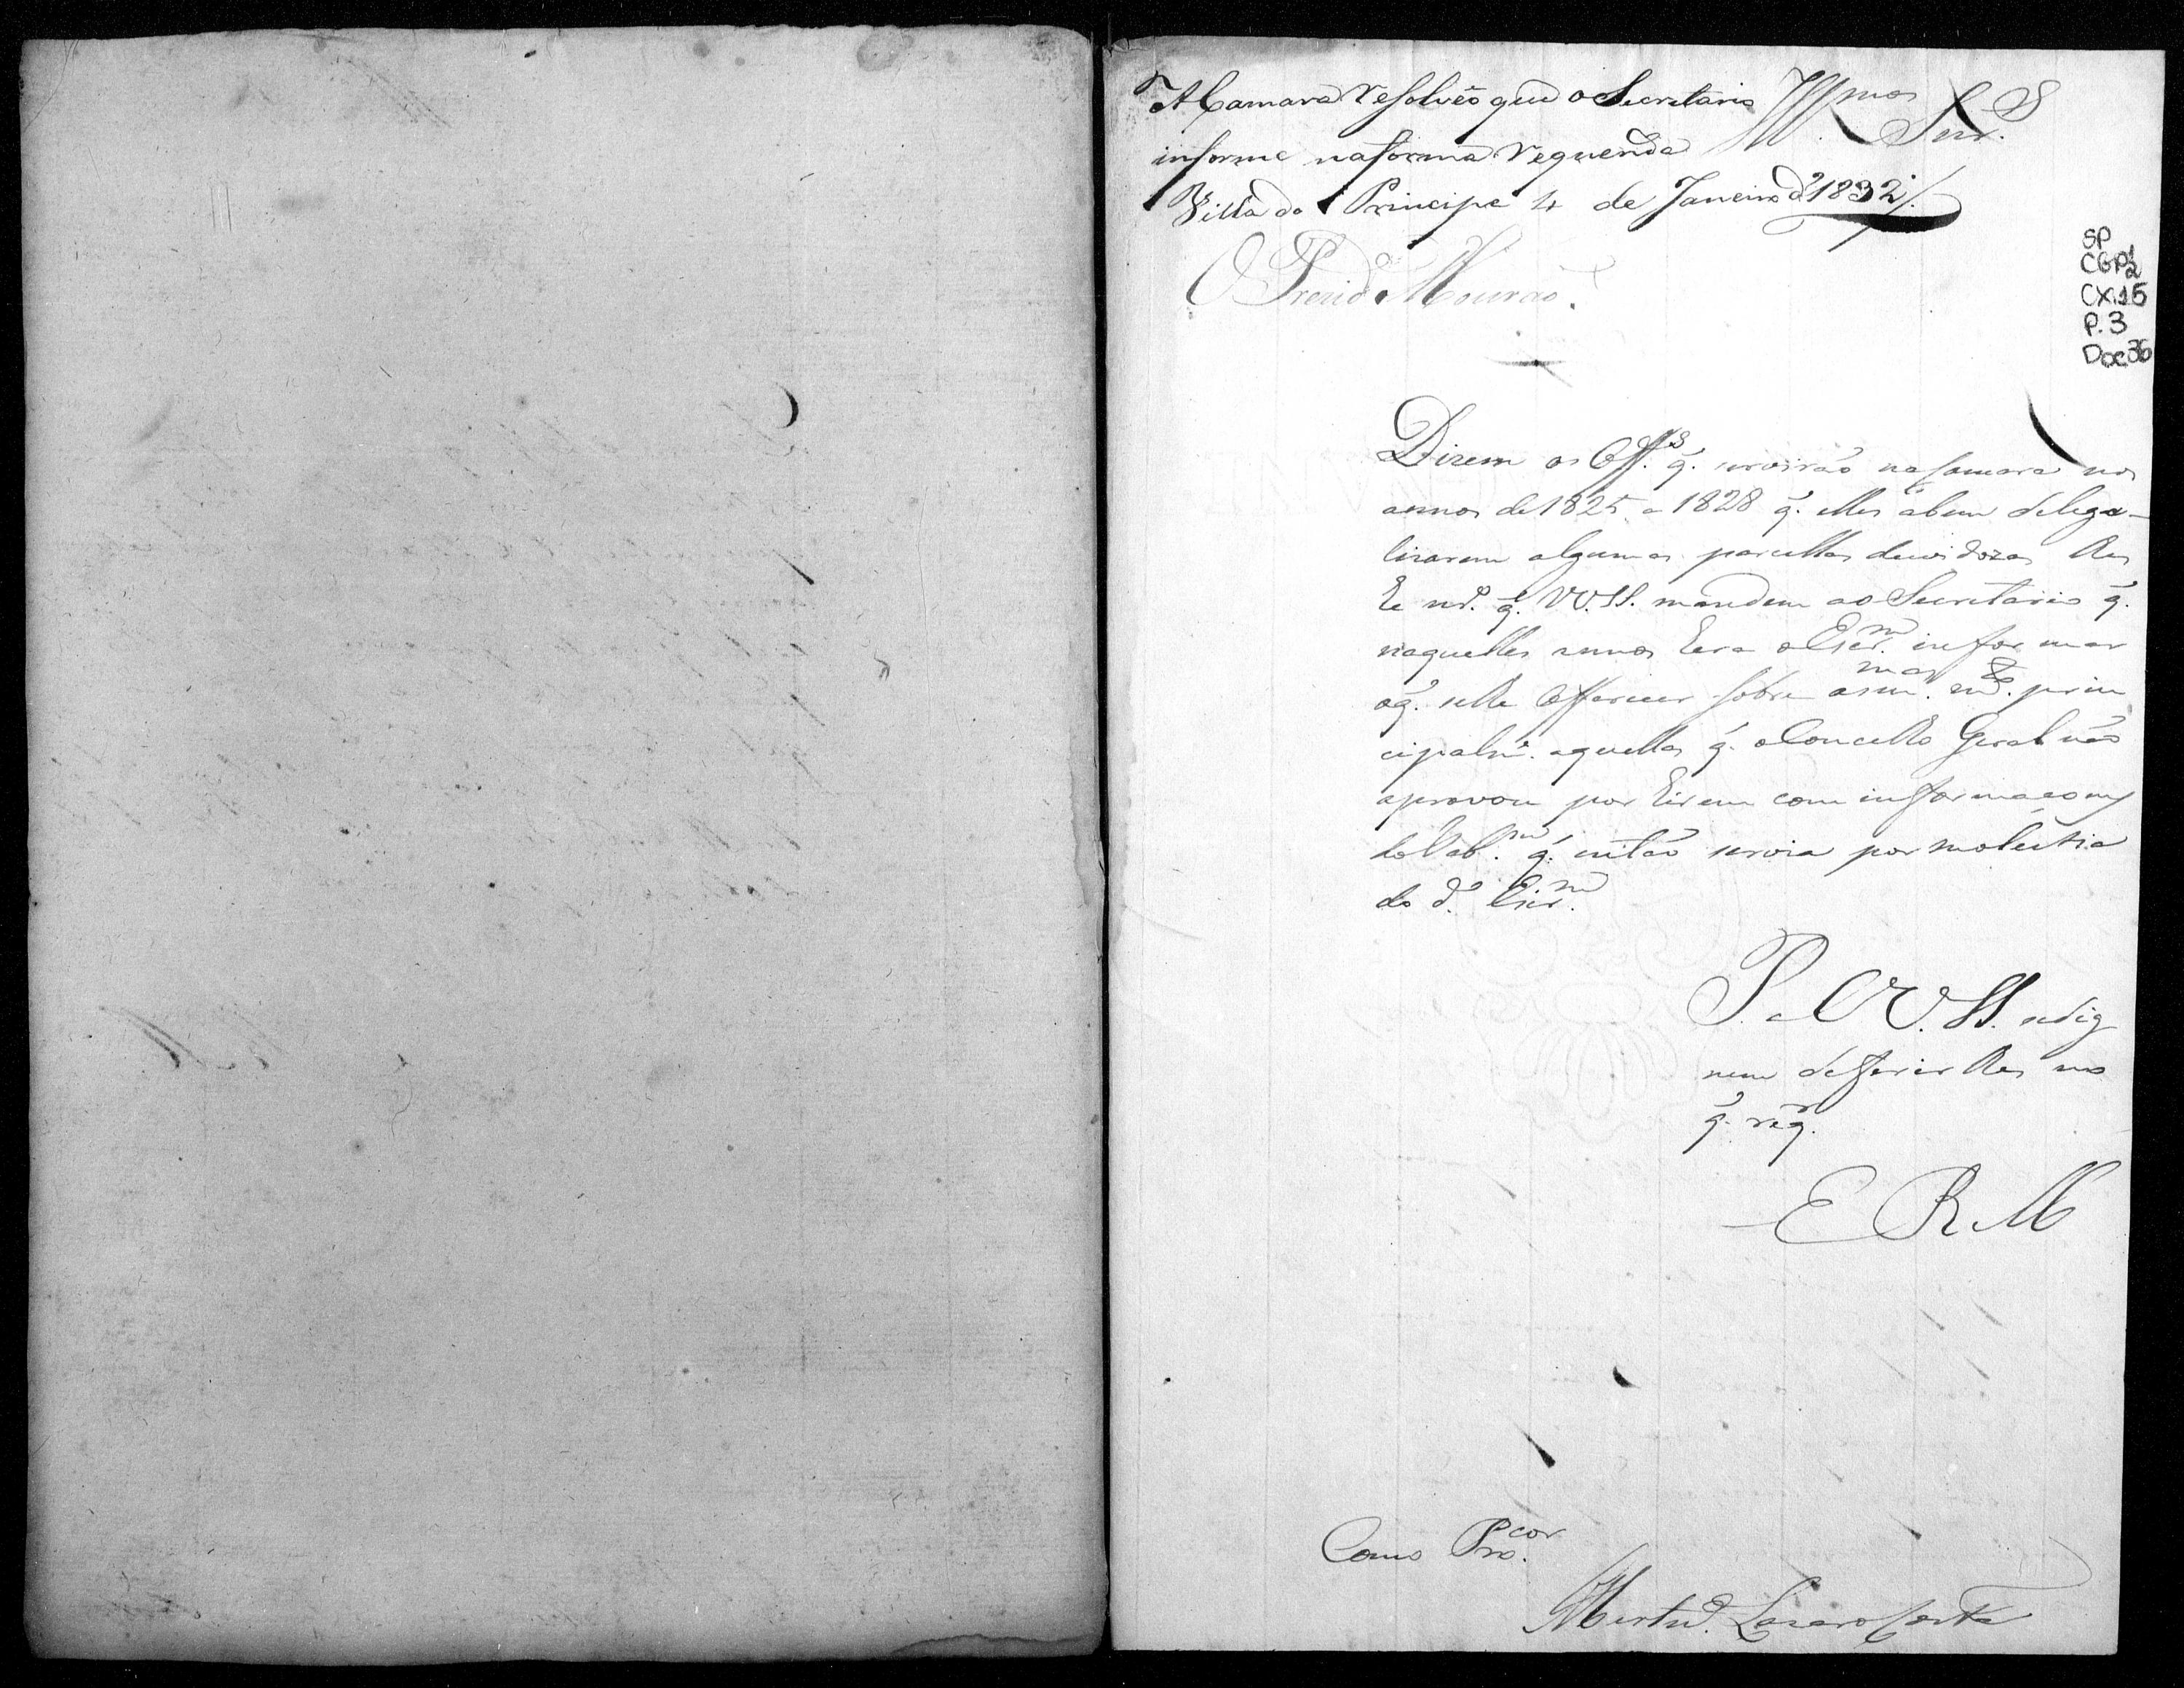 A Camara resolveo que o Secretario
informe na forma requerida
Villa do Principe 4 de Janeiro d' 1832 /.
O Prezid.e Mourão.
Ill.mos Snr.s
SP
CGP1
2
CX.15
P.3
Doc 36
Dizem os Off.s q. servirão na Camara nos
annos de 1825 a 1828 q. elles abem de lega-
lizarem algumas parcellas duvidozas lhes
he m.r q. VV.SS. mandem ao Secretario q.
naquelles annos hera o Escr.m informar
o q. se lhe offerecer sobre as m.mas
principalm.e aquellas q. o Concelho Geral não
aprovou por hirem com informaçoens
do Tab.am q. então servia por moléstia
do d.o Escr.m
P. a VV.SS. se dig
nem deferir lhes no
q. req.r
E R M
Como Pro.cor
Lazaro Costa